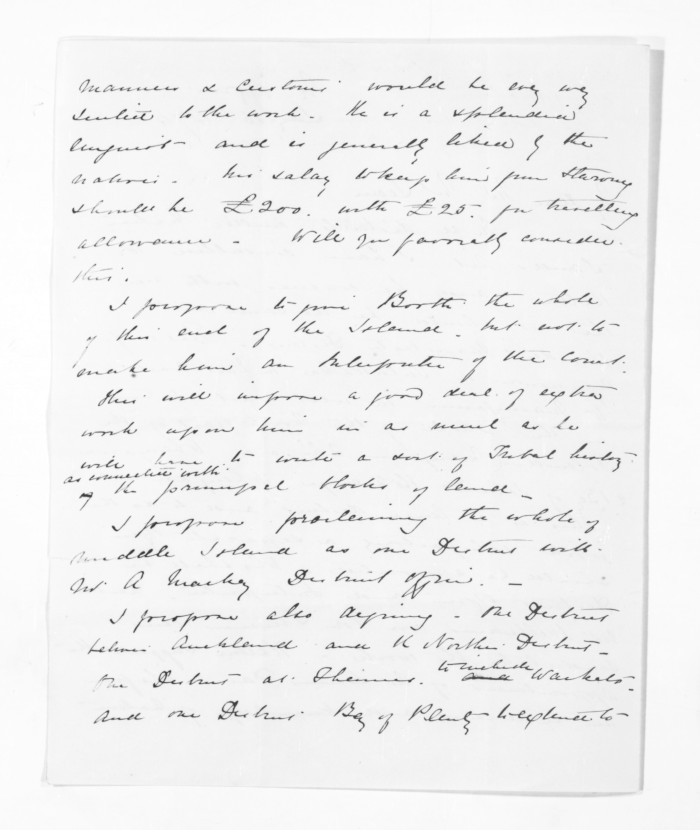 manners & customs would be every way
suited to the work. He is a splendid
linguist and is generally liked by the
natives. his salary to keep him from starving
should be £200. with £25. for travelling
allowance. Will you favorably consider
this.
I propose to give Booth the whole
of this end of the Island. but not to
make him an Interpreter of the Court.
This will impose a good deal of extra
work upon him in as much as he
will have to write a sort of Tribal history
as connected with
of the principal blocks of land_
I propose proclaiming the whole of
middle Island as one District with
Mr A Mackay District Officer. _
I propose also defining - One District
between Auckland and the Northern District_
One District at Thames. to include and Waikato_
and one District Bay of Plenty to extend to